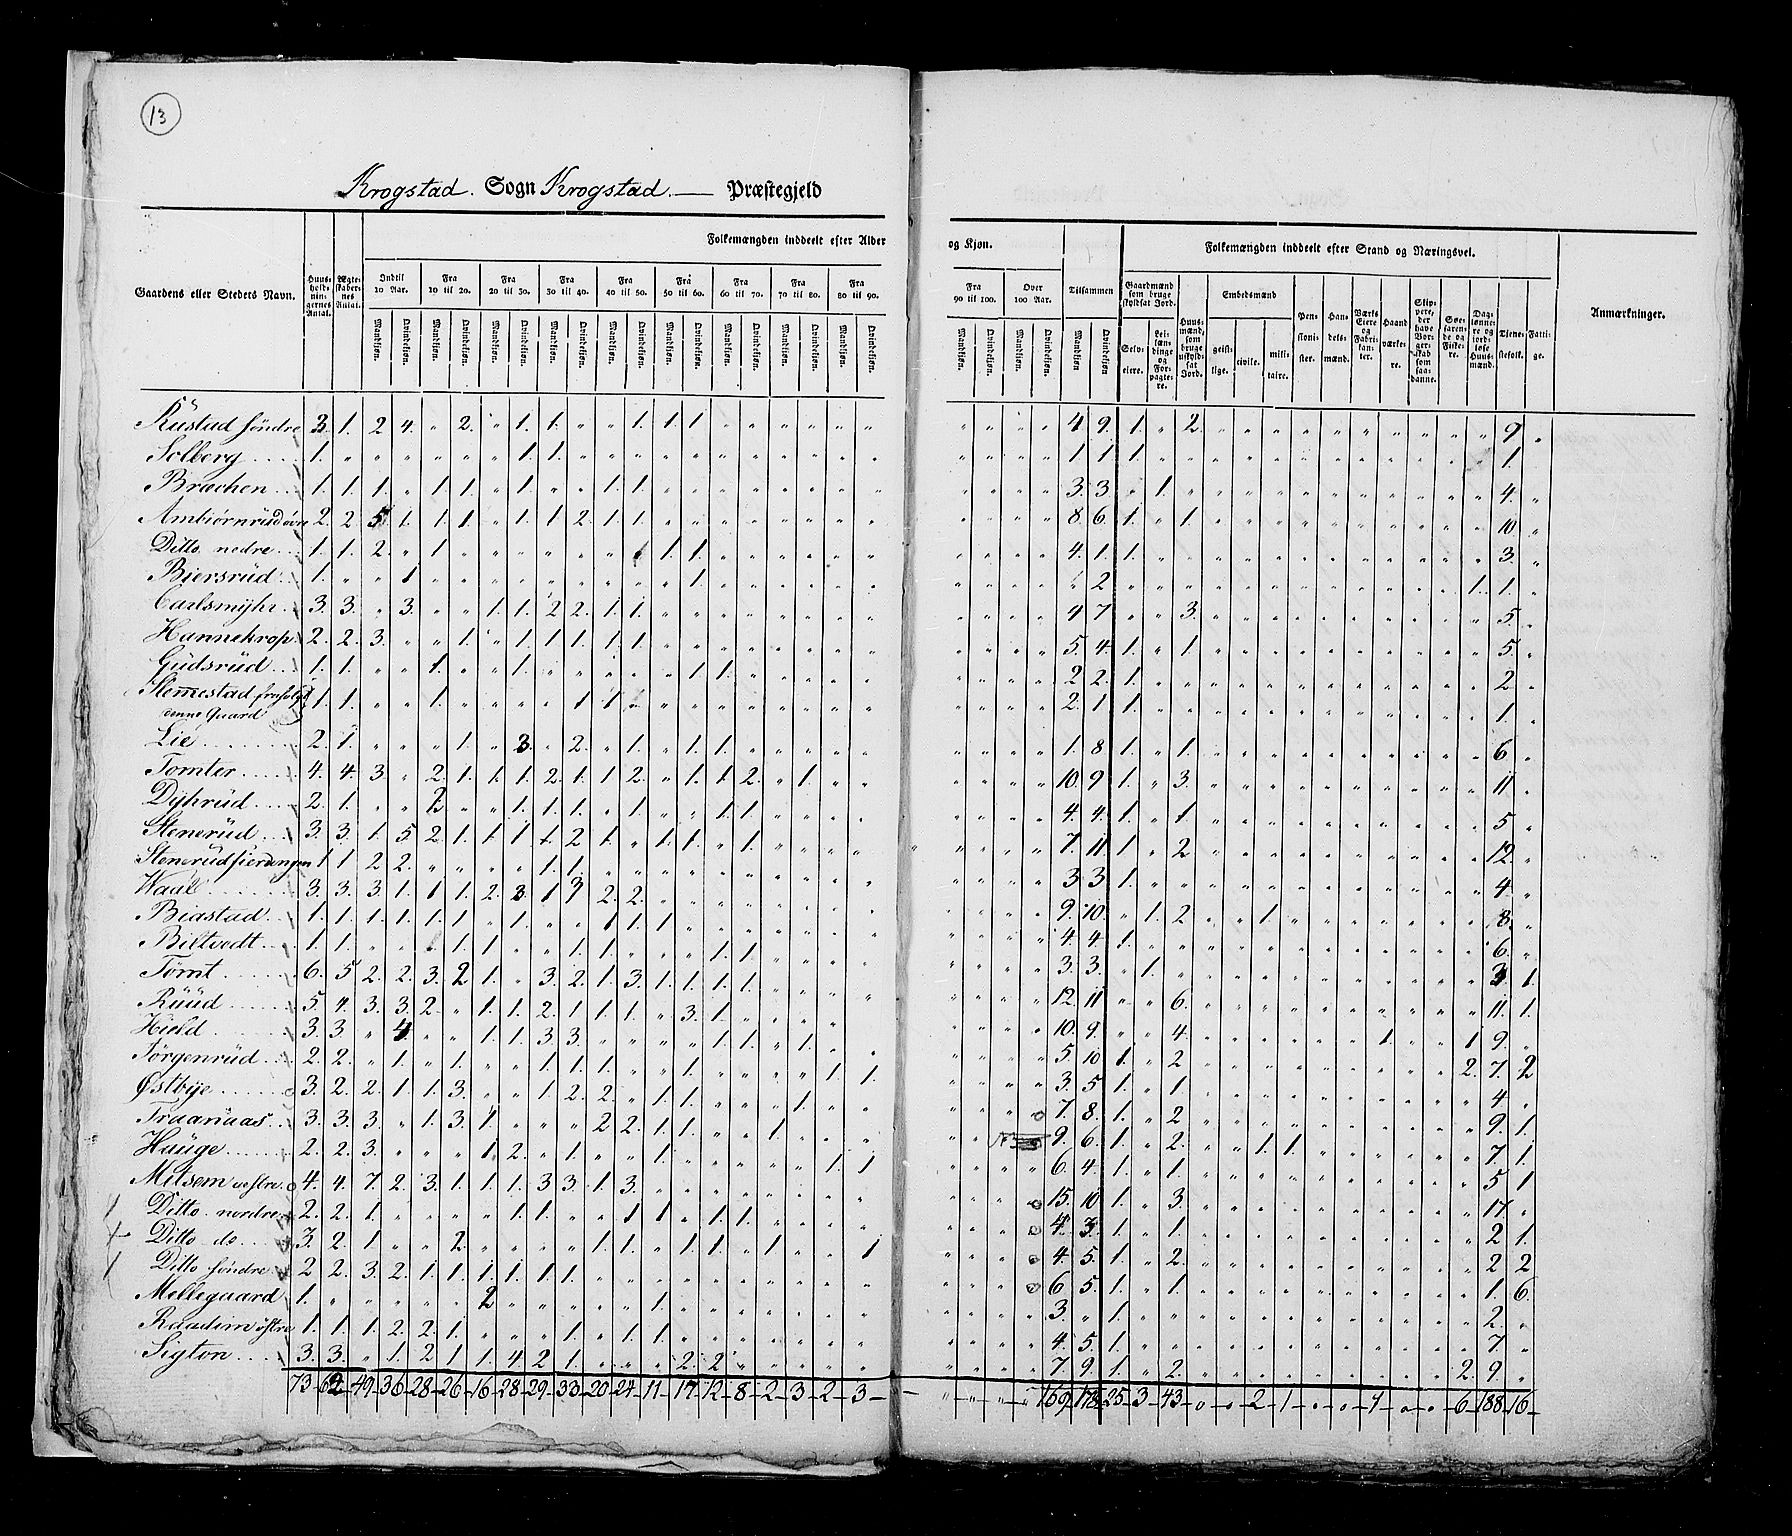 13
Krogstad. Sogn Krogstad. — Præstegjeld
Folkemængden inddeelt efter Alder og Kjøn.
Folkemængden inddeelt efter Stand og Næringsvei.
Gaardens eller Stedets Navn.
Huusholdningernes Antal.
Ægteskabernes Antal.
Indtil 10 Aar.
Fra 10 til 20.
Fra 20 til 30.
Fra 30 til 40.
Fra 40 til 50.
Fra 50 til 60.
Fra 60 til 70.
Fra 70 til 80.
Fra 80 til 90.
Fra 90 til 100.
Over 100 Aar.
Tilsammen
Mandkjøn. Qvindekjøn.
Gaardmænd som bruge skyldsat Jord.
Selveiere.
Leilændinge og Forpagtere.
Huusmænd, som bruge uskyldsat Jord.
Embedsmænd
geistlige. civile. militaire.
Pensionister.
Handelsmænd.
Værks Eiere og Fabrikanter.
Haandværkere.
Skippere, der have Borgerskab som saadanne.
Søefarende og Fiskere.
Daglønnere og jordløse Huusmænd.
Tjenestefolk.
Fattige.
Anmærkninger.
Rustad søndre 3. 1. 2 4. „ 2. „ 1. 1. „ „ 1. 1. 1 „ „ „ „ „ „ „ „ „ „ 4 9. 1. „ 2. „ „ „ „ „ „ „ „ „ „ 9 „
Solberg 1. „ „ „ „ „ „ 1 1. „ „ „ „ „ „ „ „ „ „ „ „ „ „ „ 1 1 1 „ „ „ „ „ „ „ „ „ „ „ „ 1. „
Brachen 1. 1. 1. „ 1 1. „ 1. „ „ 1. 1 „ „ „ „ „ „ „ „ „ „ „ „ 3. 3 „ 1. „ „ „ „ „ „ „ „ „ „ „ 4. „
Ambiørnrüd øvre 2. 2 5 1. 1. 1. „ 1. 1 2. 1. 1. „ „ „ „ „ „ „ „ „ „ „ „ 8 6. 1. „ 1. „ „ „ „ „ „ „ „ „ „ 10. „
Ditto nedre 1. 1. 2. „ 1 „ „ „ „ „ „ „ 1. 1. „ „ „ „ „ „ „ „ „ „ 4. 1. 1. „ „ „ „ „ „ „ „ „ „ „ „ 3. „
Biersrüd 1. „ „ 1 „ „ „ „ „ „ „ „ „ 1. „ „ „ „ „ „ „ „ „ „ „ 2 „ „ „ „ „ „ „ „ „ „ „ „ 1. 1. „
Carlsmyhr 3. 3. „ 3. „ „ 1. 1. 2 2. 1. 1. „ „ „ „ „ „ „ „ „ „ „ „ 4 7. „ „ 3. „ „ „ „ „ „ „ „ „ „ 5. „
Hannekrop 2. 2. 3. „ „ 1. „ 1. 1 1. 1. 1. „ „ „ „ „ „ „ „ „ „ „ „ 5. 4. 1. „ 1. „ „ „ „ „ „ „ „ „ „ 5. „
Güdsrüd 1. 1. „ „ 1. „ „ 1. „ „ „ „ „ 1. 1. „ „ „ „ „ „ „ „ „ 2 2. 1. „ „ „ „ „ „ „ „ „ „ „ „ 2 „
Stenestad
denne Gaard 1. 1. „ „ 1. „ „ „ „ 1 1. „ „ „ „ „ „ „ „ „ „ „ „ „ 2. 1 1. „ „ „ „ „ „ „ „ „ „ „ „ 1. „
Lie 2. 1. „ „ „ 1. „ 3. „ 2. „ 1. „ 1. 1. „ „ „ „ „ „ „ „ „ 1. 8 1. „ 1. „ „ „ „ „ „ „ „ „ „ 6 „
Tomter 4. 4. 3. „ 2. 1. 1. 1. 2. 1. 1 2. „ 1. 1. 2. „ 1. „ „ „ „ „ „ 10. 9 1. „ 3. „ „ „ „ „ „ „ „ „ „ 11 „
Dyhrüd 2. 1. „ „ 2 „ „ 1. 1. 1. „ 1. „ „ 1. 1 „ „ „ „ „ „ „ „ 4. 4. 1. „ 1 „ „ „ „ „ „ „ „ „ „ 5 „
Stenerüd 3. 3. 1. 5 2 1. 1 1 1. 2 1. 1. „ 1. 1. „ 1. „ „ „ „ „ „ „ 7. 11. 1. „ 2 „ „ „ „ „ „ „ „ „ „ 12. „
Stenerüdfierdingen 1 1 2 2. „ „ „ „ 1. 1. „ „ „ „ „ „ „ „ „ „ „ „ „ „ 3 3 1. „ „ „ „ „ „ „ „ „ „ „ „ 4 „
Waül 3. 3. 3 1. 1 1. 2. 3. 1 3 2. 2. „ „ „ „ „ „ „ „ „ „ „ „ 9. 10. „ 1. 2 „ „ 1. „ „ „ „ „ „ „ 8. „
Biastad 1. 1. 1. 1. 1. 1. „ 1. „ „ 1 1. 1. „ „ „ „ „ „ „ „ „ „ „ 4. 4. 1. „ „ „ „ „ „ „ „ „ „ „ „ 6. „
Biltvedt 1. 1. „ „ „ 1. 1. „ 1. 1. „ „ „ „ 1. 1 „ „ „ „ „ „ „ „ 3. 3. „ 1. „ „ „ „ „ „ „ „ „ „ „ 3 1.
Tømt 6. 5 2. 2. 3. 2 1. „ 3. 2. 1. 3. 1. 1. 1. 1. „ „ „ „ „ „ „ „ 12. 11 „ „ 6. „ „ „ „ „ „ „ „ „ „ 11. 1.
Rüüd 5. 4. 3. 3. 2. „ 1. 1. 2. 1. 1. 1. „ 3. 1. „ „ „ „ „ „ „ „ „ 10. 9. „ „ 4. „ „ „ „ „ „ 1. „ „ 1 9. „
Hield 3. 3. „ 4. „ „ 1. 1. 3 3. „ „ „ „ 1. 1. „ 1. „ „ „ „ „ „ 5. 10 1. „ 2 „ „ „ „ „ „ „ „ „ 2. 7. 2
Jørgenrüd 2. 2. „ 1. „ 1. „ „ 1. 1. 1. „ „ 1. „ „ „ „ 1. 1. „ „ „ „ 3. 5. 1. „ 1. „ „ „ „ „ „ „ „ „ „ 4 „
Østbye 3. 2. 2. 1. 1. 3. „ „ 1. 2. 2. „ 1. 1. „ „ 1. „ „ „ „ „ „ „ 7. 8. 1. „ 2 „ „ „ „ „ „ „ „ „ „ 9. 1.
Traanaas 3. 3. 3. „ 1. 3. 1. „ „ „ 2 2. 1. 1. „ „ 1. „ „ „ „ „ „ „ 9. 6. 1. „ 2. „ „ 1. 1. „ „ „ „ „ „ 7. 1.
Hauge 2. 2. 3. „ „ „ 1. 2. „ 1. „ „ 1. „ „ „ „ „ 1. 1 „ „ „ „ 6. 4. 1. „ 1. „ „ „ „ „ „ „ „ „ „ 5 1
Mitsem vestre 4. 4. 7. 2. 3. 1. 1. 1. 3 3. 1. 3. „ „ „ „ „ „ „ „ „ „ „ „ 15. 10 1. „ 3. „ „ „ „ „ „ „ „ „ „ 17. „
Ditto nordre 2. 2. 1. „ „ „ „ 1. 1. „ „ 1 1. „ 1. 1. „ „ „ „ „ „ „ „ 4. 3. 1. „ 1. „ „ „ „ „ „ „ „ „ „ 2 1.
Ditto do 3. 2. 1 „ „ 2. „ „ „ „ 1. 1. „ 1. 1. „ 1 „ „ 1 „ „ „ „ 4. 5. 1. „ 2. „ „ „ „ „ „ „ „ „ „ 2 2
Ditto søndre 2 2. 3. 2. 1. 1. 1. 1. 1. 1. „ „ „ „ „ „ „ „ „ „ „ „ „ „ 6 5. 1. „ 1. „ „ „ „ „ „ „ „ „ „ 1. 6.
Mellegaard 1. „ „ „ „ „ 2 „ „ „ „ „ 1. „ „ „ „ „ „ „ „ „ „ „ 3. „ 1. „ „ „ „ „ „ „ „ „ „ „ „ 2. „
Raadim østre 1. 1. 1. 2. 2. 1. „ „ „ 1. „ 1. 1. „ „ „ „ „ „ „ „ „ „ „ 4. 5. 1. „ „ „ „ „ „ „ „ „ „ „ „ 7. „
Sigton 3. 3. „ 1. 2 1 1. 4 2 1. „ „ „ 2. 2. „ „ „ „ „ „ „ „ „ 7 9. 1. „ 2. „ „ „ „ „ „ „ „ „ 2. 9. „
73 62 49 36 28 26 16 28 29 33 20 24 11 17 12 8 2 3 2 3 „ „ „ „ 169 178 25 3 43 0 0 2 1 0 0 1 0 0 6 188 16